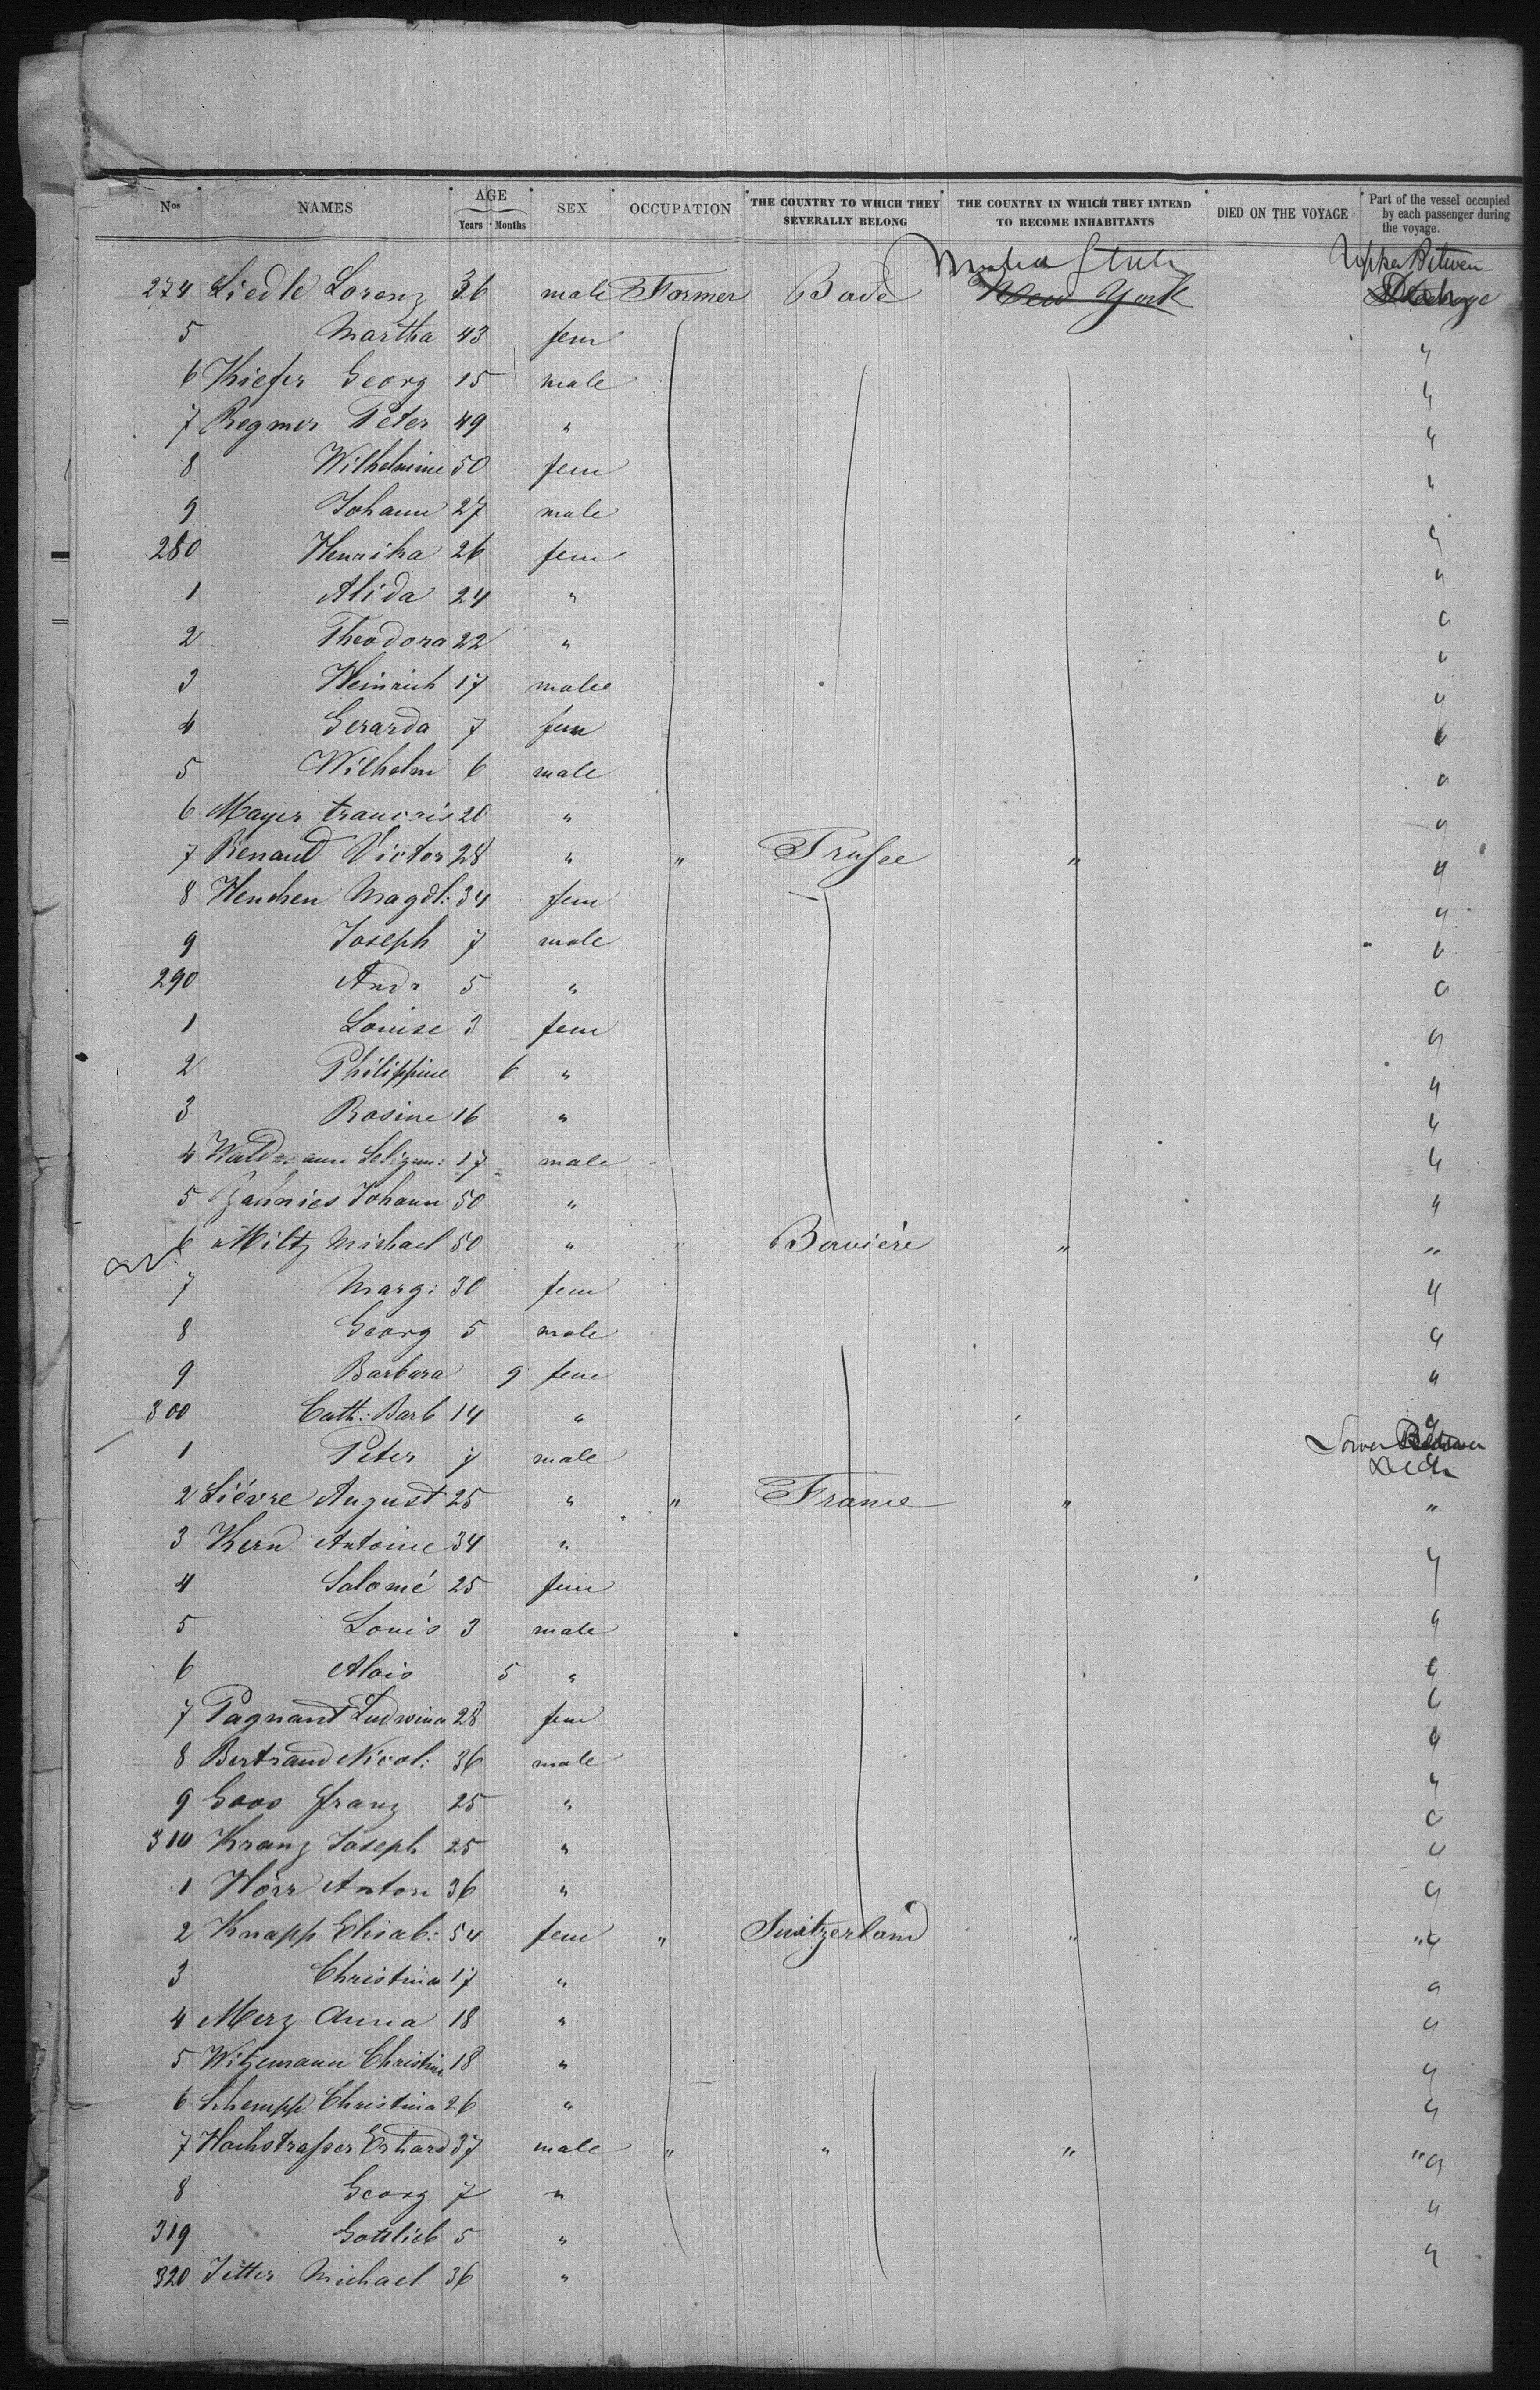 Nos NAMES AGE Years Months SEX OCCUPATION THE COUNTRY TO WHICH THEY SEVERALLY BELONG THE COUNTRY IN WHICH THEY INTEND TO BECOME INHABITANTS DIED ON THE VOYAGE Part of the vessel occupied by each passenger during the voyage.
274 Liedle Lorenz 36 male Former Bade New York Upper Between Deck
5 Martha 43 fem "
6 Kiefer Georg 15 male "
7 Regmer Peter 49 " "
8 Wilhelmine 50 fem "
9 Johann 27 male
280 Henrika 26 fem "
1 Alida 24 " "
2 Theodora 22 " "
3 Heinrich 17 male "
4 Gerarda 7 fem "
5 Wilhelm 6 male "
6 Mayer francois 20 " "
7 Renaud Victor 28 " " Prusse " "
8 Henchen Magdl: 34 fem "
9 Joseph 7 male "
290 Andr 5 " "
1 Louise 3 fem "
2 Philippine 6 " "
3 Rosine 16 " "
4 Waldmann Seligm: 17 male "
5 Johann 50 " "
6 Miltz Michael 50 " " Baviére " "
7 Marg: 30 fem "
8 Georg 5 male "
9 Barbara 9 fem "
300 Cath: Barb 14 " "
1 Peter 7 male Lower Between Deck
2 Liévre August 25 " " France " "
3 Kern Antoine 34 " "
4 Salomé 25 fem
5 Louis 3 male "
6 Alois 5 " "
7 Pagnant Ludwina 28 fem "
8 Bertrand Nicol: 36 male "
9 Goos franz 25 " "
310 Kranz Joseph 25 " "
1 Hörr Anton 36 " "
2 Knapp Elisab: 54 fem " Switzerland " "
3 Christina 17 " "
4 Merz Anna 18 " "
5 Witzemann Christine 18 " "
6 Schempp Christina 26 " "
7 Hochstrasser Erhard 37 male " " " "
8 Georg 7 " "
319 Gottlieb 5 " "
320 Jetter Michael 36 "